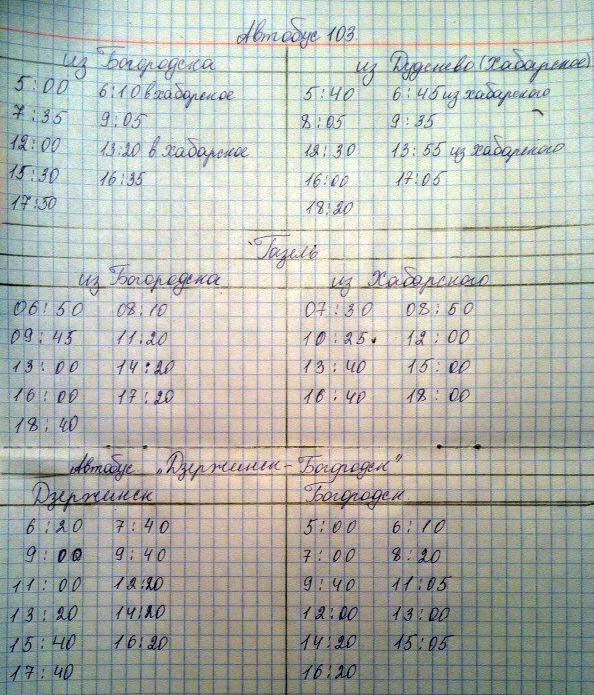 Автобус 103
из Богородска из Дуденево (Хабарское)
5:00 6:10 в хабарское 5:40 6:45 из хабарского
7:35 9:05 8:05 9:35
12:00 13:20 в хабарское 12:30 13:55 из хабарского
15:30 16:35 16:00 17:05
17:50 18:20
Газель
из Богородска из Хабарского
06:50 08:10 07:30 08:50
09:45 11:20 10:25 12:00
13:00 14:20 13:40 15:00
16:00 17:20 16:40 18:00
18:40
Автобус „Дзержинск-Богородск"
Дзержинск Богородск
6:20 7:40 5:00 6:10
9:00 9:40 7:00 8:20
11:00 12:20 9:40 11:05
13:20 14:20 12:00 13:00
15:40 16:20 14:20 15:05
17:40 16:20